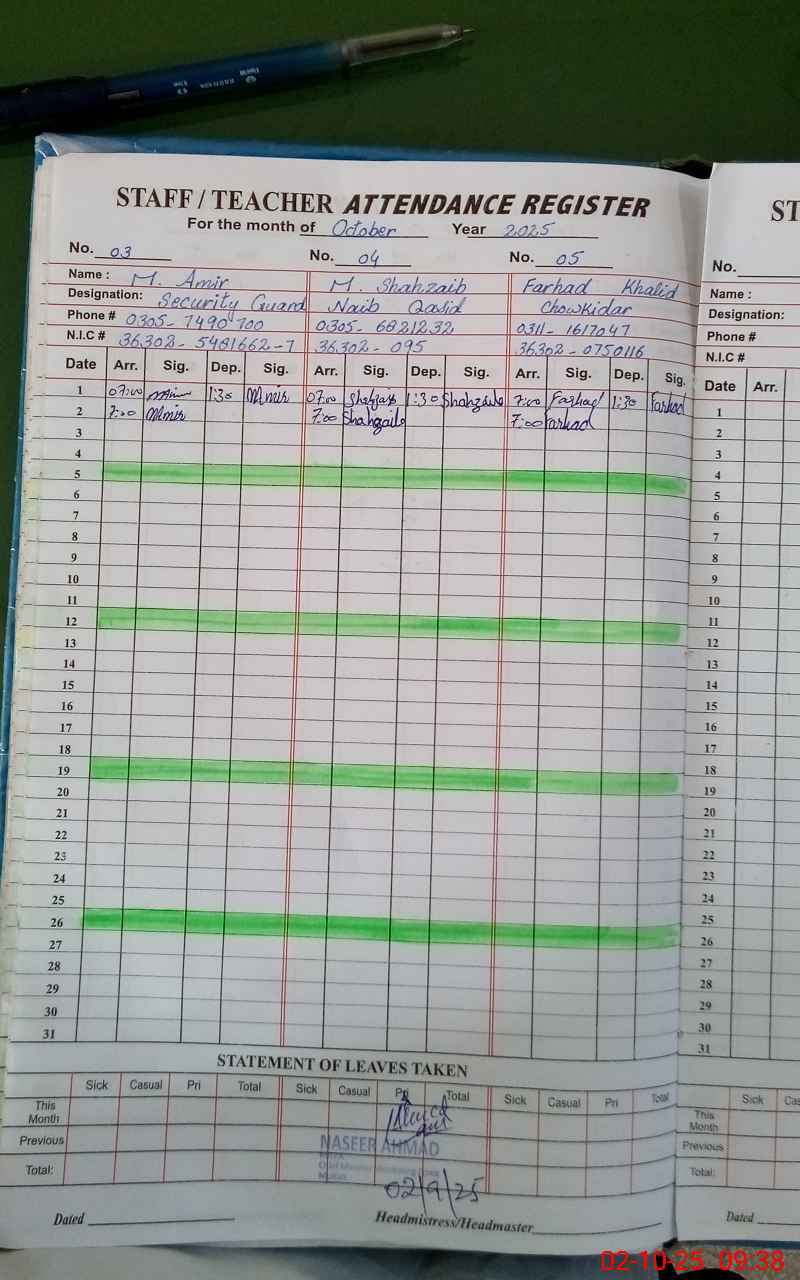 STAFF / TEACHER ATTENDANCE REGISTER
For the month of October Year 2025
No. 03 No. 04 No. 05
Name : M. Amir M. Shahzaib Farhad Khalid
Designation: Security Guard Naib Qasid Chowkidar
Phone # 0305-7490700 0305-6821232 0311-1617047
N.I.C # 36302-5481662-7 36302-095 36302-0750116
Date Arr. Sig. Dep. Sig. Arr. Sig. Dep. Sig. Arr. Sig. Dep. Sig.
1 07:00 1:30 MAmir 07:00 1:30 Shahzaib 7:00 Farhad 1:30 Farhad
2 7:00 MAmir 7:00 Shahzaib 7:00 Farhad
3
4
5
6
7
8
9
10
11
12
13
14
15
16
17
18
19
20
21
22
23
24
25
26
27
28
29
30
31
STATEMENT OF LEAVES TAKEN
Sick Casual Pri Total Sick Casual Pri Total Sick Casual Pri Total
This Month
Previous
Total:
NASEER AHMAD
02/9/25
Dated Headmistress/Headmaster
ST
No.
Name :
Designation:
Phone #
N.I.C #
Date Arr.
1
2
3
4
5
6
7
8
9
10
11
12
13
14
15
16
17
18
19
20
21
22
23
24
25
26
27
28
29
30
31
Sick Cas
This Month
Previous
Total:
Dated
02-10-25 09:38